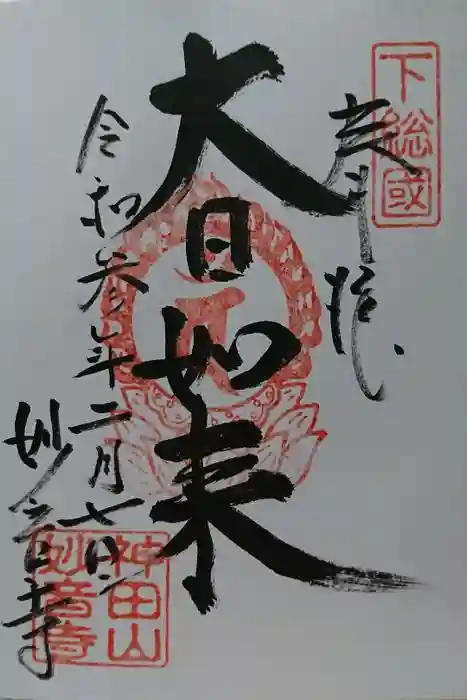 下総國
奉拝
大日如来
令和参年二月七日
妙音寺
神田山
妙音寺